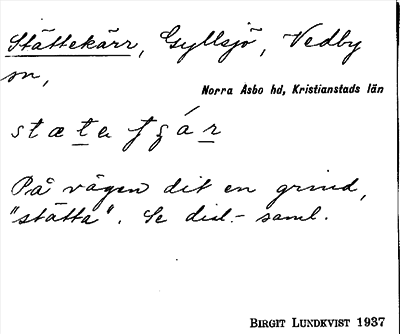 Stättekärr, Gyllsjö, Vedby
sn,
Norra Åsbo hd, Kristianstads län
På vägen dit en grind,
"stätta". Se dial.- saml.
BIRGIT LUNDKVIST 1937